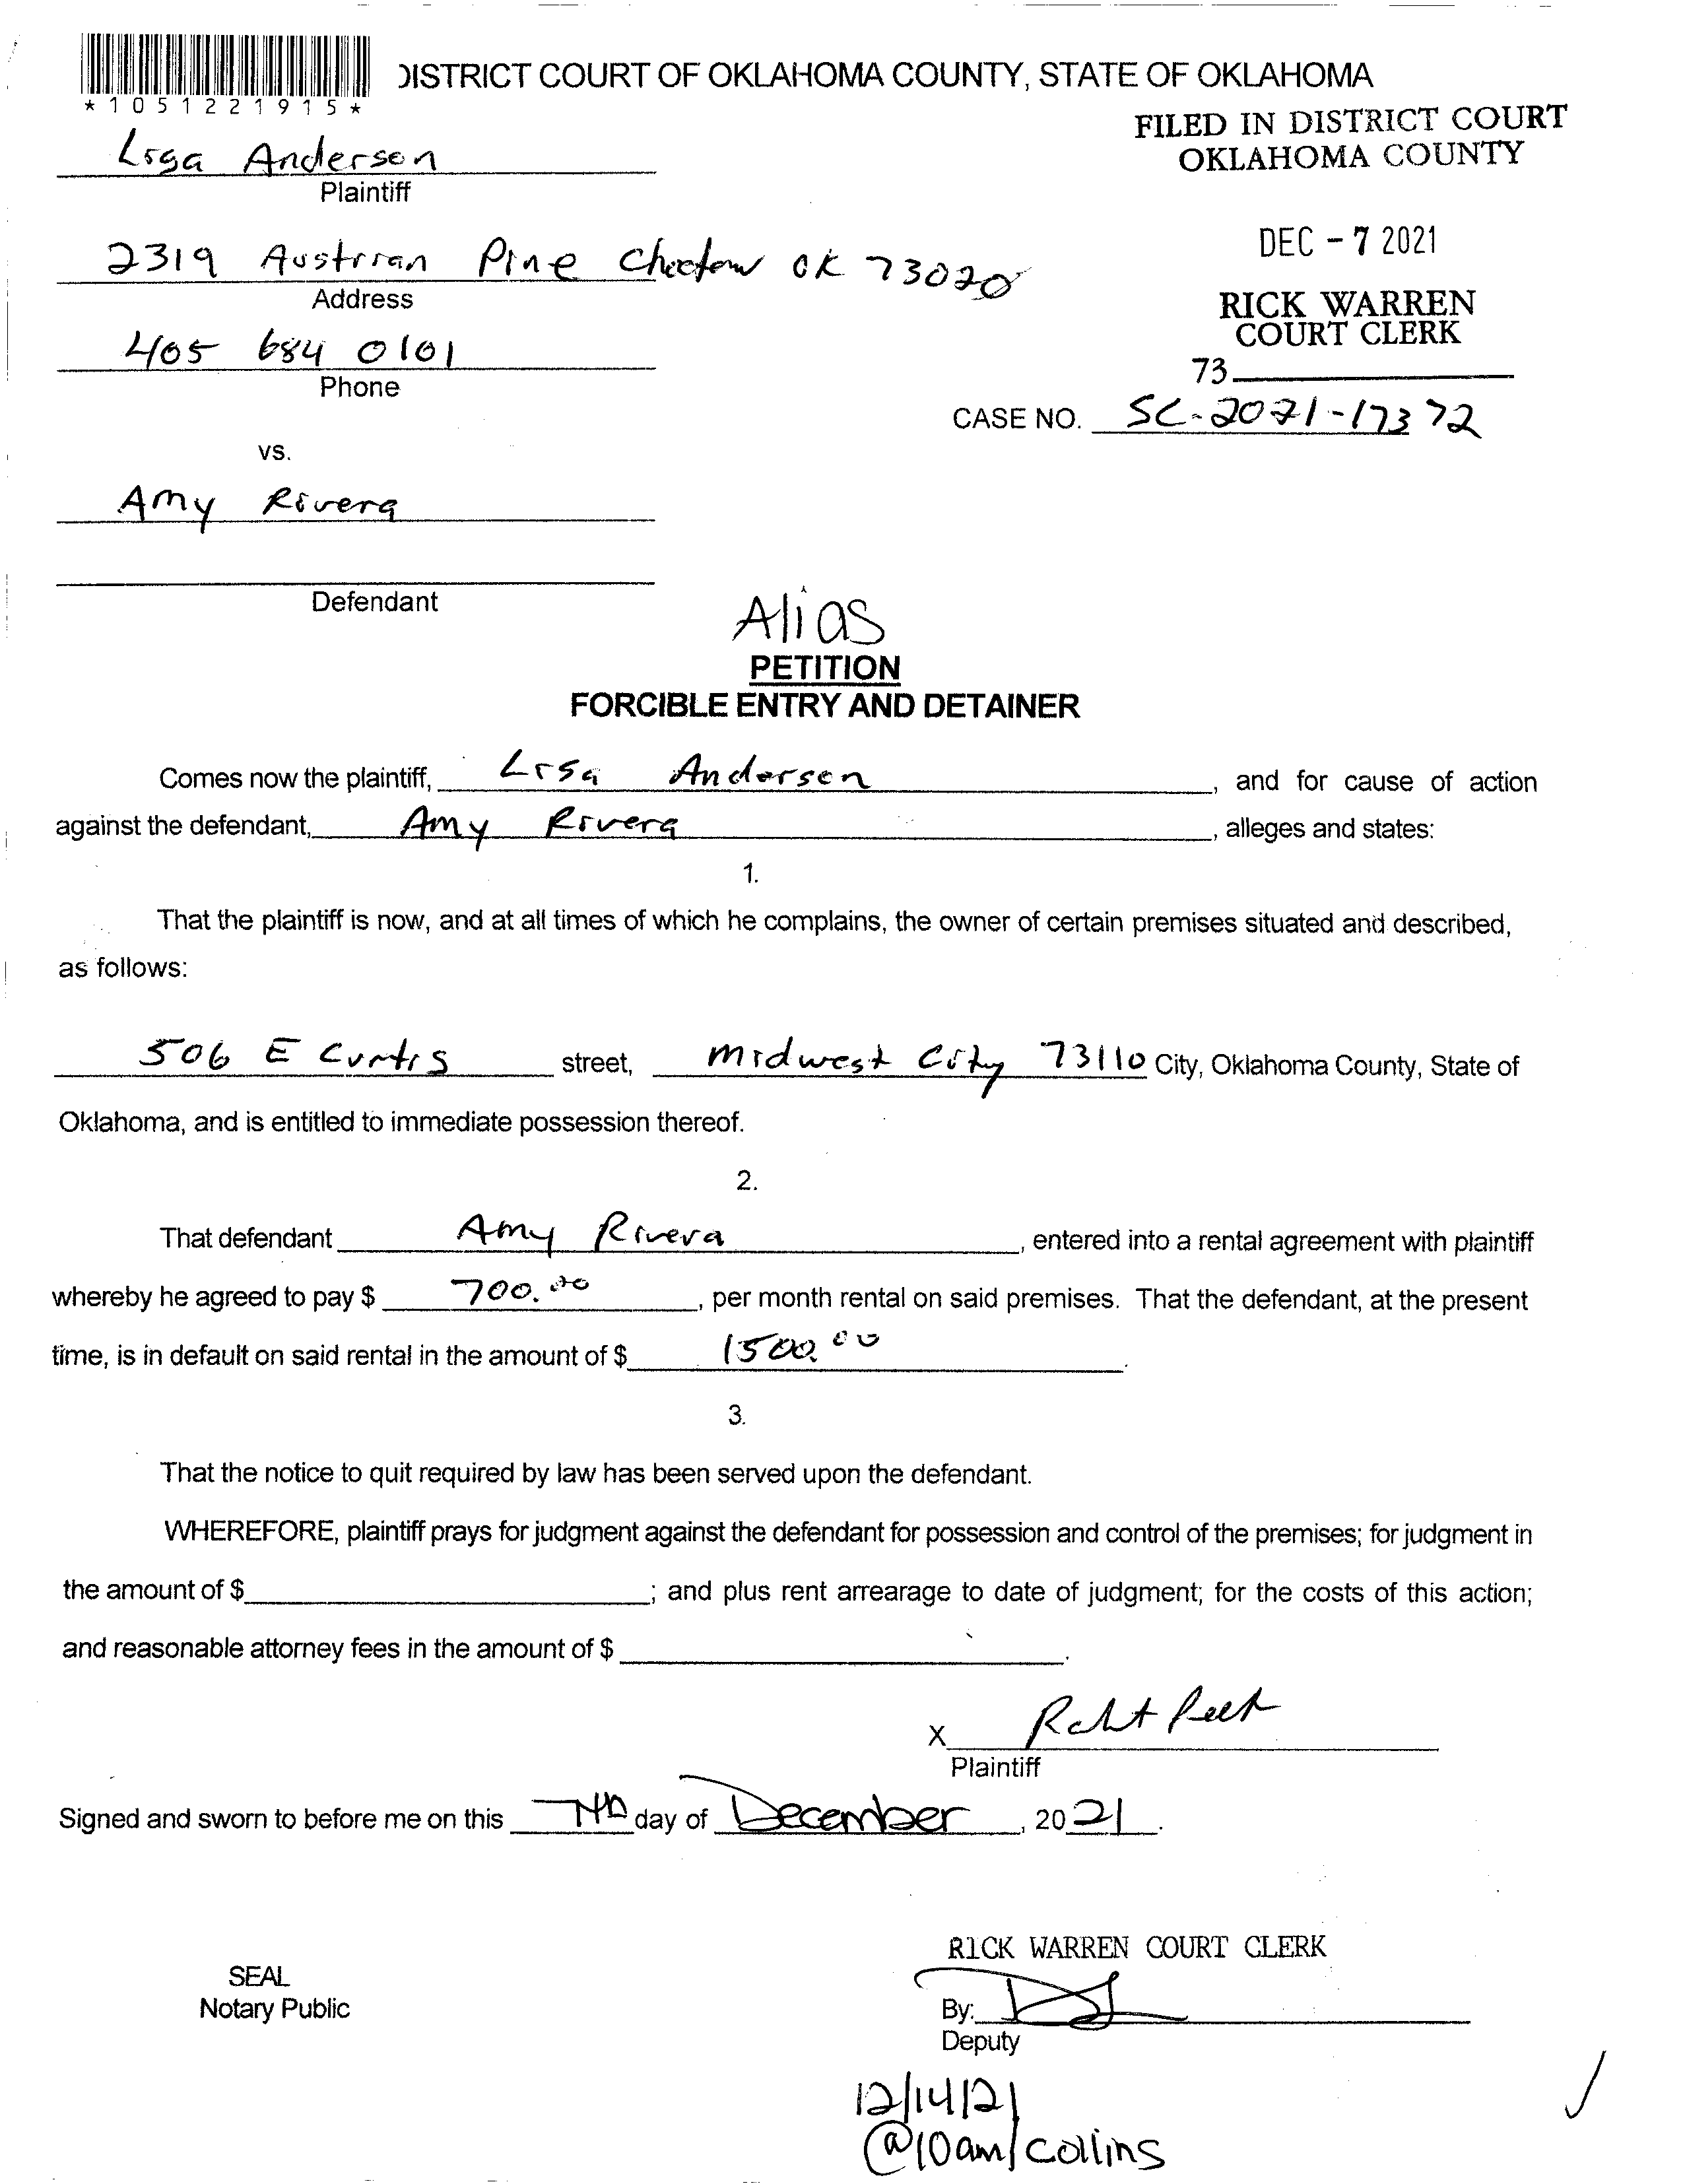 *1051221915*
DISTRICT COURT OF OKLAHOMA COUNTY, STATE OF OKLAHOMA
FILED IN DISTRICT COURT
OKLAHOMA COUNTY
Lisa Anderson
Plaintiff
DEC - 7 2021
2319 Austrian Pine Choctaw OK 73020
Address
RICK WARREN
COURT CLERK
405 684 0101
Phone
73
CASE NO. SC-2021-17372
vs.
Amy Rivera
Defendant
Alias
PETITION
FORCIBLE ENTRY AND DETAINER
Comes now the plaintiff, Lisa Anderson, and for cause of action
against the defendant, Amy Rivera, alleges and states:
1.
That the plaintiff is now, and at all times of which he complains, the owner of certain premises situated and described,
as follows:
506 E Curtis street, Midwest City 73110 City, Oklahoma County, State of
Oklahoma, and is entitled to immediate possession thereof.
2.
That defendant Amy Rivera, entered into a rental agreement with plaintiff
whereby he agreed to pay $ 700.00, per month rental on said premises. That the defendant, at the present
time, is in default on said rental in the amount of $ 1500.00.
3.
That the notice to quit required by law has been served upon the defendant.
WHEREFORE, plaintiff prays for judgment against the defendant for possession and control of the premises; for judgment in
the amount of $ ; and plus rent arrearage to date of judgment; for the costs of this action;
and reasonable attorney fees in the amount of $ .
X
Plaintiff
Signed and sworn to before me on this 7th day of December, 2021.
RICK WARREN COURT CLERK
SEAL
Notary Public
By:
Deputy
12/14/21
@10am/collins